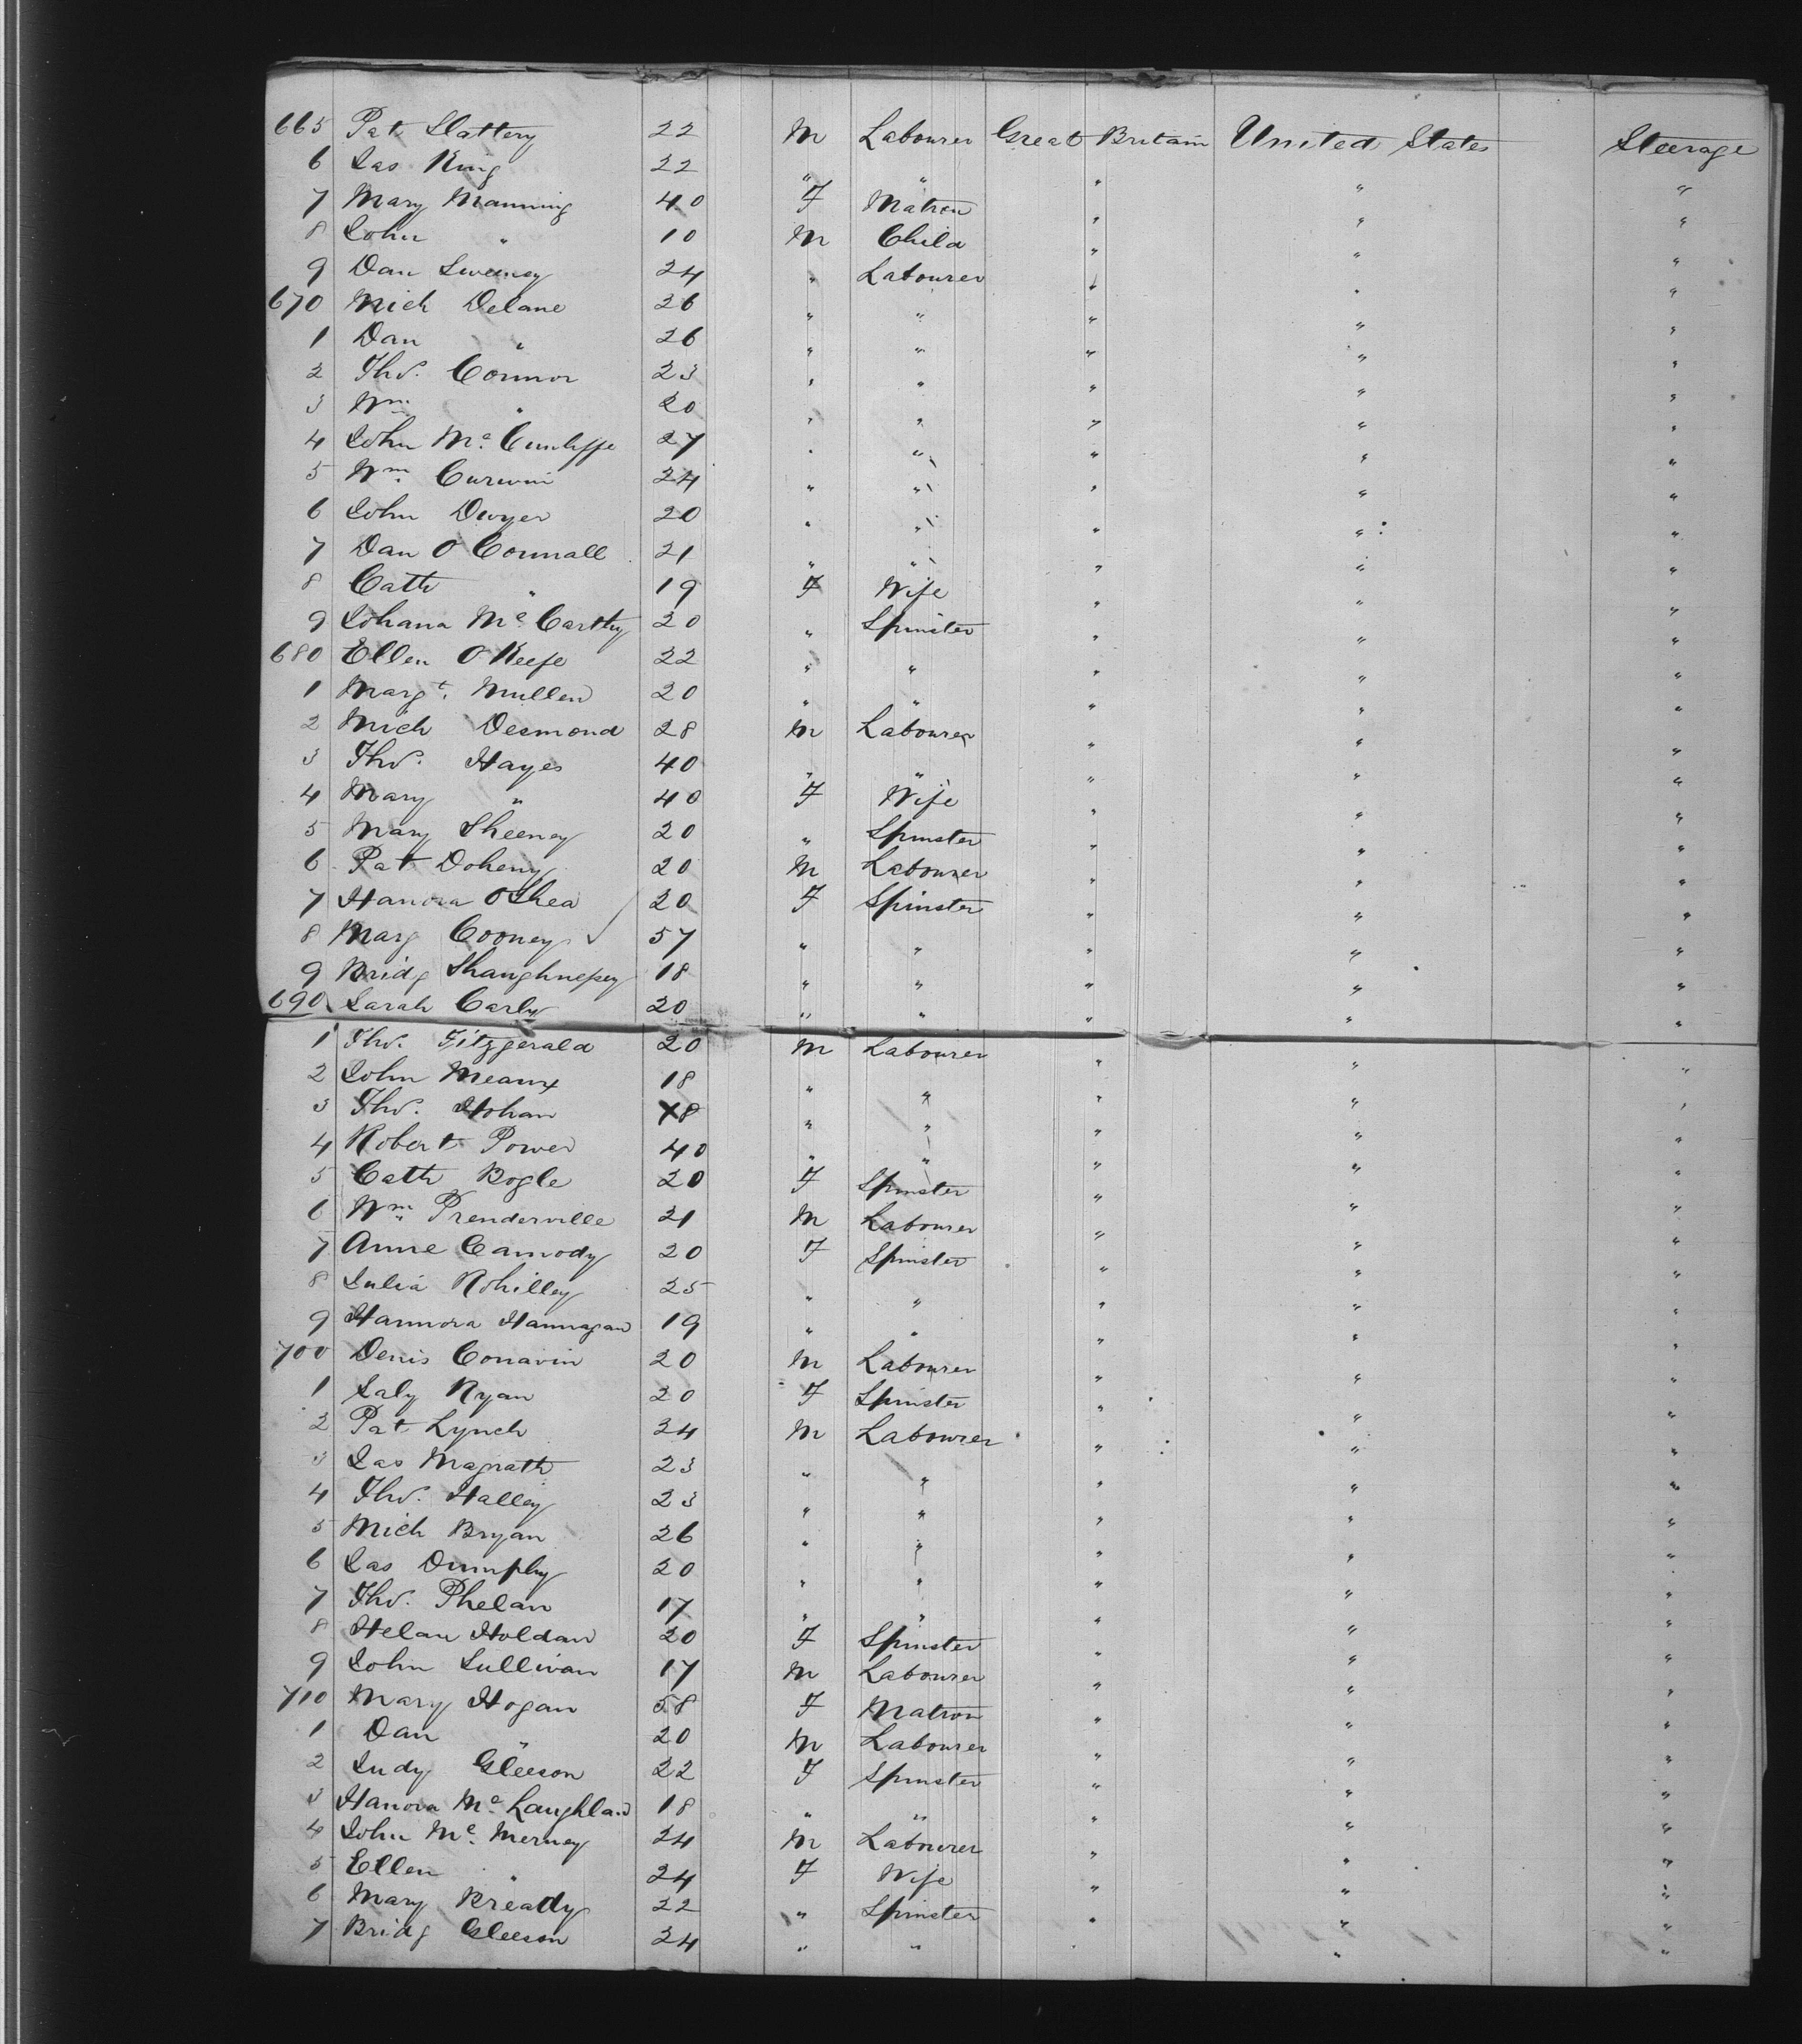 665 Pat Slattery 22 M Labourer Great Britain United States Steerage
6 Jas King 22 " " " " "
7 Mary Manning 40 F Matron " " "
8 John " 10 M Child " " "
9 Dan Sweeney 24 " Labourer " " "
670 Mich Delane 26 " " " " "
1 Dan " 26 " " " " "
2 Thos. Connor 23 " " " " "
3 Wm " 20 " " " " "
4 John Mc. Cunliffe 27 " " " " "
5 Wm. Curwin 24 " " " " "
6 John Dwyer 20 " " " " "
7 Dan O Connall 21 " " " " "
8 Cath " 19 F Wife " " "
9 Johana Mc Carthy 20 " Spinster " " "
680 Ellen O Keefe 22 " " " " "
1 Margt. Mullen 20 " " " " "
2 Mich Desmond 28 M Labourer " " "
3 Thos. Hayes 40 " " " " "
4 Mary " 40 F Wife " " "
5 Mary Sheeney 20 " Spinster " " "
6 Pat Doheny 20 M Labourer " " "
7 Hanora OShea 20 F Spinster " " "
8 Marg Cooney 57 " " " " "
9 Bridg Shaughnessy 18 " " " " "
690 Sarah Carly 20 " " " " "
1 Thos. Fitzgerald 20 M Labourer " " "
2 John Meany 18 " " " " "
3 Thos. Hohan 18 " " " " "
4 Robert Power 40 " " " " "
5 Cath Bogle 20 F Spinster " " "
6 Wm Prenderville 21 M Labourer " " "
7 Anne Camody 20 F Spinster " " "
8 Julia Rohilley 25 " " " " "
9 Hannora Hannagan 19 " " " " "
700 Denis Conavin 20 M Labourer " " "
1 Saly Ryan 20 F Spinster " " "
2 Pat Lynch 24 M Labourer " " "
3 Jas Magrath 23 " " " " "
4 Thos. Halley 23 " " " " "
5 Mich Bryan 26 " " " " "
6 Jas Dumphy 20 " " " " "
7 Thos. Phelan 17 " " " " "
8 Helan Holdan 20 F Spinster " " "
9 John Sullivan 17 M Labourer " " "
710 Mary Hogan 58 F Matron " " "
1 Dan " 20 M Labourer " " "
2 Judy Gleeson 22 F Spinster " " "
3 Hanora Mc Laughlan 18 " " " " "
4 John Mc. Merney 24 M Labourer " " "
5 Ellen " 24 F Wife " " "
6 Mary Bready 22 " Spinster " " "
7 Bridg Gleeson 24 " " " " "